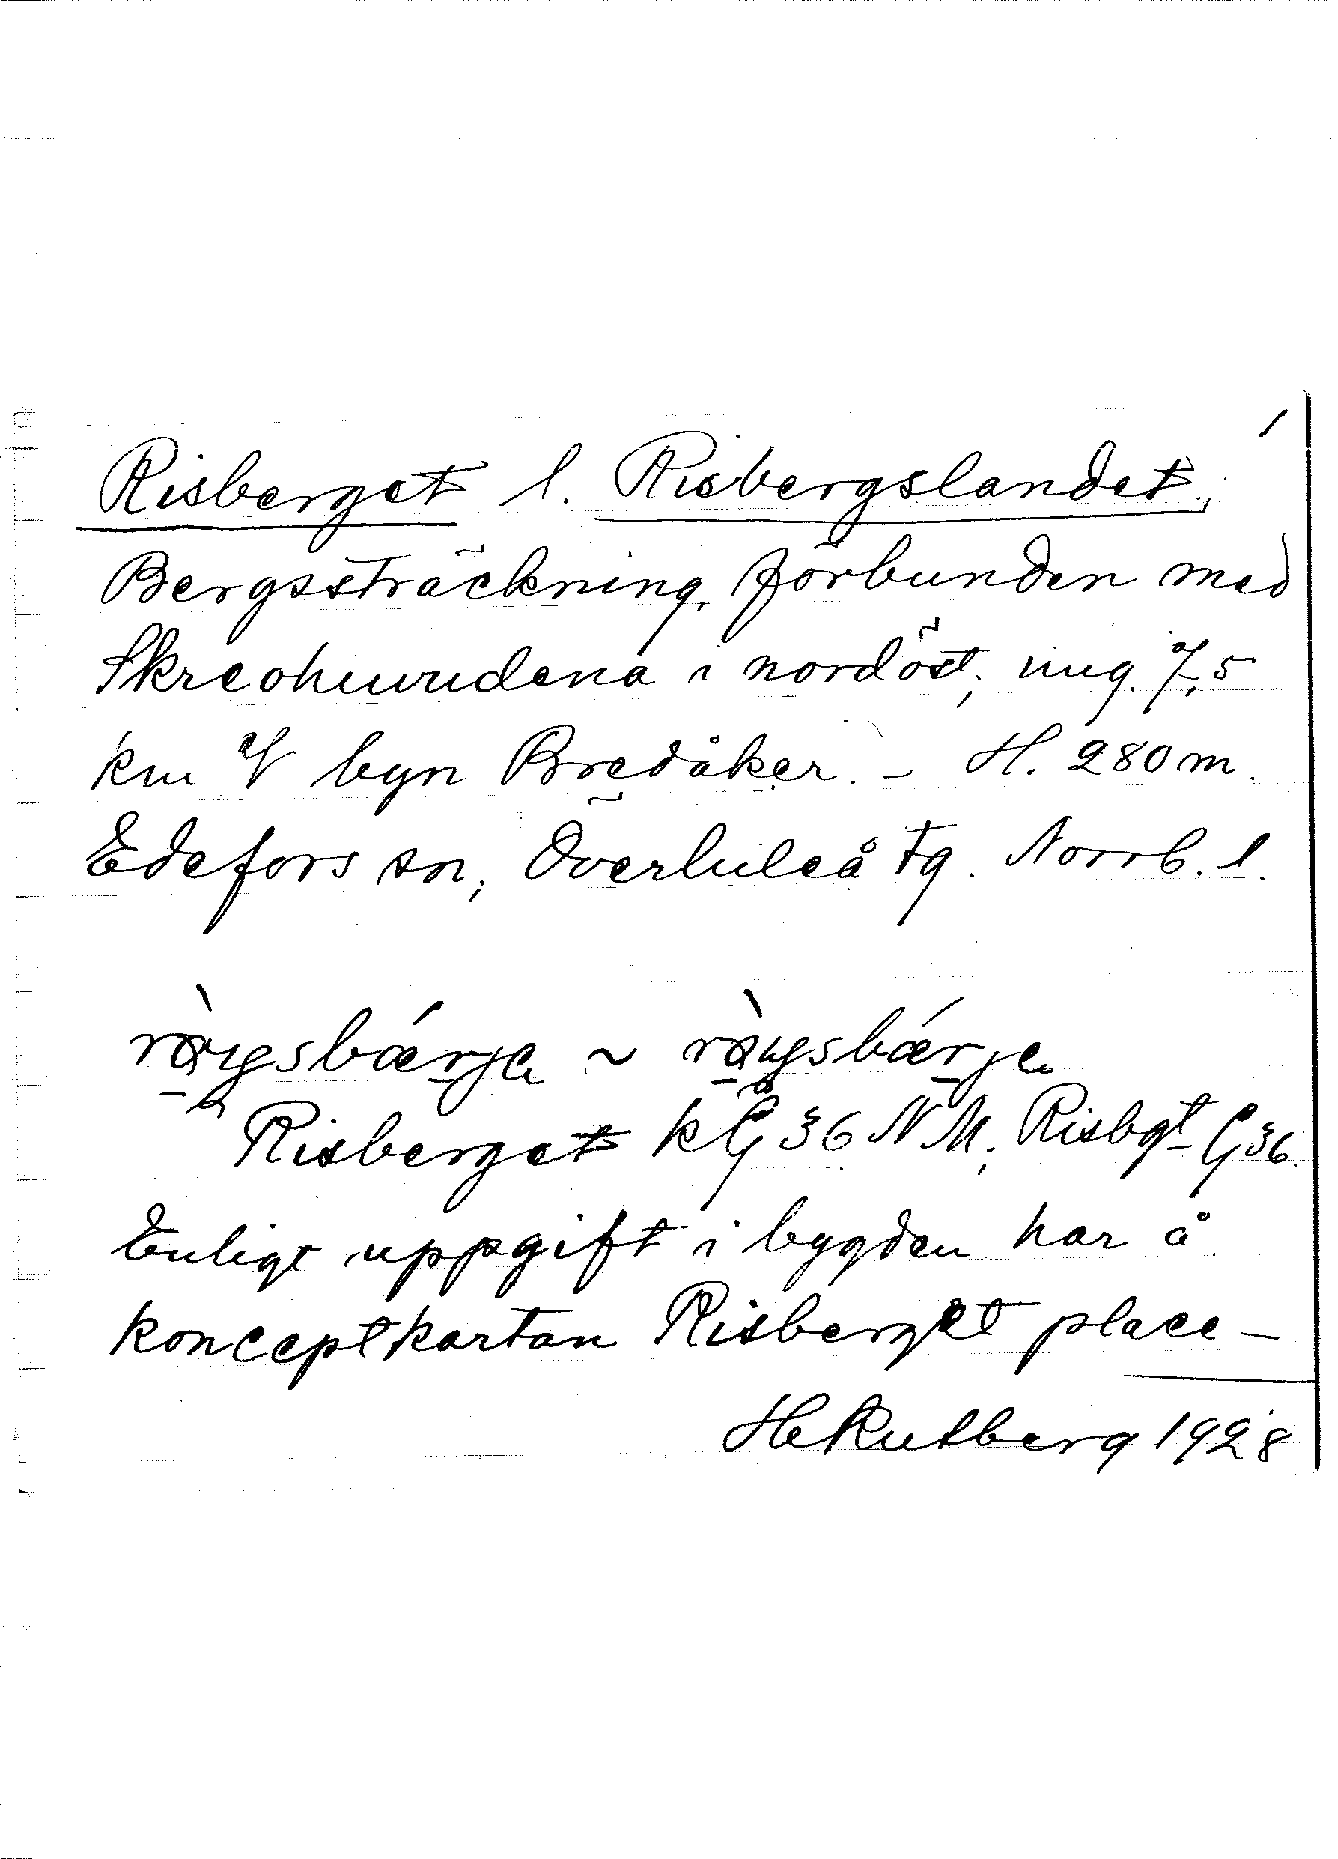 1
Risberget l. Risbergslandet,
Bergssträckning, förbunden med
i nordöst, ung. 7,5
km V byn Bredåker. - H. 280 m.
Edefors sn, Överluleå tg. Norrb. l.
~
Risberget k G 36 NM; Risbgt G 36.
Enligt uppgift i bygden har å
konceptkartan Risberget place-
1928